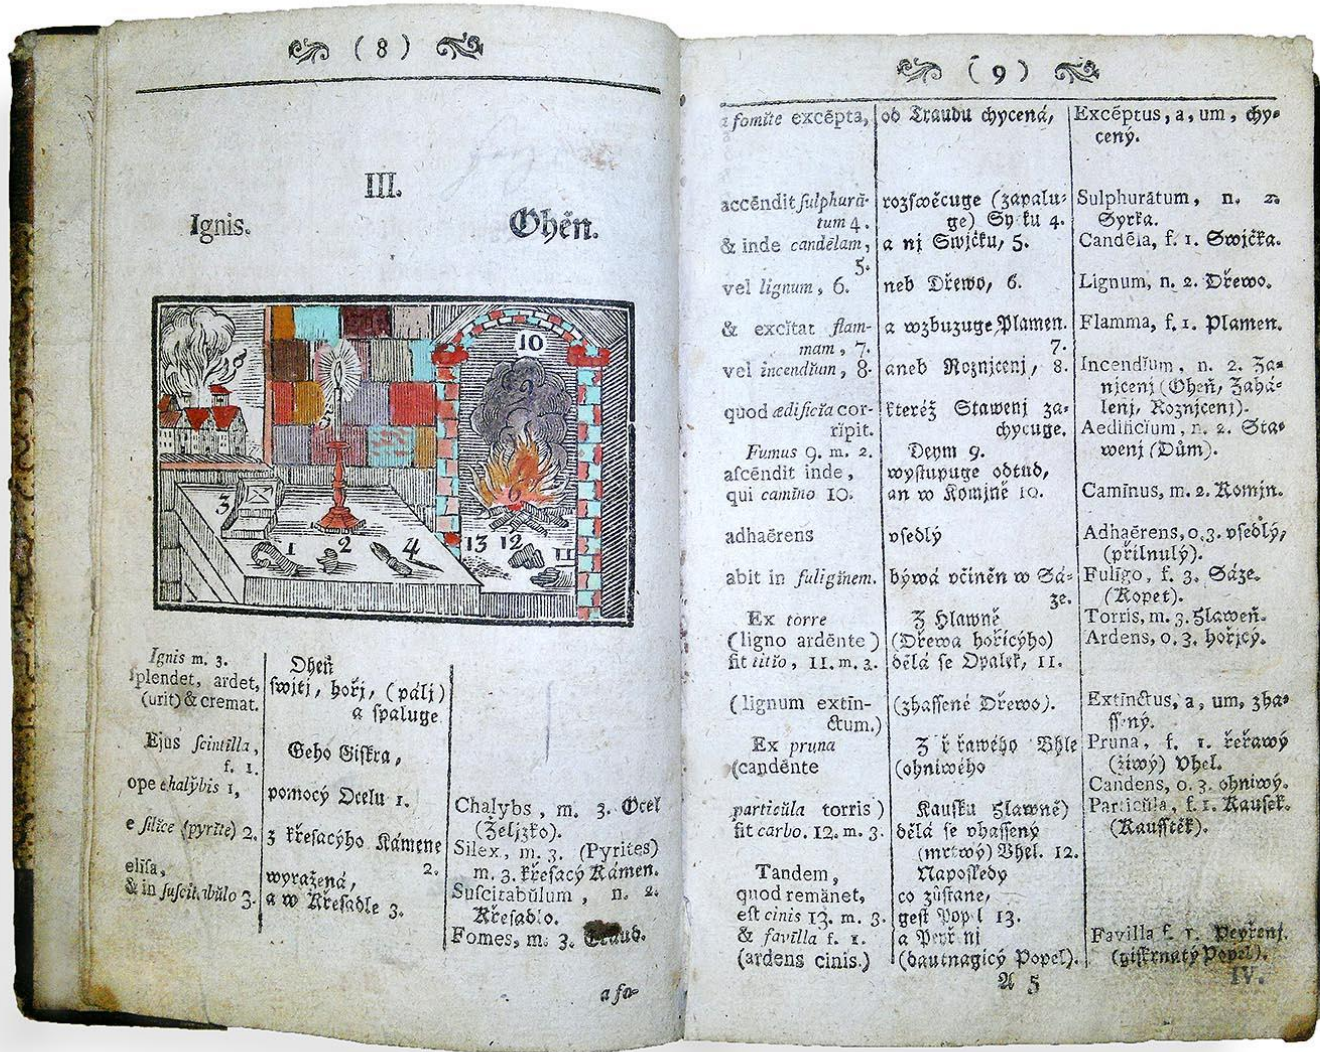 ( 8 )
III.
Ignis.
Ohěn.
10
9
8
5
6
3
1
2
4
13
12
11
Ignis m. 3.
splendet, ardet,
(urit) & cremat.
Ejus ſcintilla,
f. 1.
ope chalybis 1,
e ſilice (pyrite) 2.
eliſa,
& in ſuſcitabŭlo 3.
Oheň
ſwjtj, hořj, (pálj)
a ſpaluge
Geho Giſkra,
pomocý Ocelu 1.
z křeſacýho Kámene
2.
wyražená,
a w Křeſadle 3.
Chalybs, m. 3. Ocel
(Železko).
Silex, m. 3. (Pyrites)
m. 3. křeſacý Kámen.
Suſcitabŭlum, n. 2.
Křeſadlo.
Fomes, m. 3. Traud.
a fo-
( 9 )
a fomĭte excēpta,
accēndit ſulphurā-
tum 4.
& inde candēlam,
5.
vel lignum, 6.
& excĭtat flam-
mam, 7.
vel incendĭum, 8.
quod ædificĭa cor-
rĭpit.
Fumus 9. m. 2.
aſcēndit inde,
qui camīno 10.
adhaērens
abit in fuligĭnem.
Ex torre
(ligno ardēnte)
fit titio, 11. m. 3.
(lignum extīn-
ctum.)
Ex pruna
(candēnte
particŭla torris)
fit carbo. 12. m. 3.
Tandem,
quod remănet,
eſt cinis 13. m. 3.
& favīlla f. 1.
(ardens cinis.)
od Traudu chycená,
rozſwěcuge (zapalu-
ge) Syrku 4.
a nj Swjčku, 5.
neb Dřewo, 6.
a wzbuzuge Plamen.
7.
aneb Roznjcenj, 8.
kteréž Stawenj za-
chycuge.
Deym 9.
wyſtupuge odtud,
an w Komjně 10.
vſedlý
býwá včiněn w Sá-
ze.
Z Hlawně
(Dřewa hořícýho)
dělá ſe Opalek, 11.
(zhaſſené Dřewo).
Z řeřawého Vhle
(ohniwého
Kauſku Hlawně)
dělá ſe vhaſſený
(mrtwý) Vhel. 12.
Napoſledy
co zůſtane,
geſt Popel 13.
a Peyřenj
(dautnagicý Popel).
A 5
Excēptus, a, um, chy-
cený.
Sulphurātum, n. 2.
Syrka.
Candēla, f. 1. Swjčka.
Lignum, n. 2. Dřewo.
Flamma, f. 1. Plamen.
Incendĭum, n. 2. Za-
njcenj (Oheň, Zahá-
lenj, Roznjcenj).
Aedificĭum, n. 2. Sta-
wenj (Dům).
Camīnus, m. 2. Komjn.
Adhaērens, o. 3. vſedlý,
(přilnulý).
Fulīgo, f. 3. Sáze.
(Kopet).
Torris, m. 3. Hlaweň.
Ardens, o. 3. hořjcý.
Extīnctus, a, um, zha-
ſſený.
Pruna, f. 1. řeřawý
(žiwý) Vhel.
Candens, o. 3. ohniwý.
Particŭla, f. 1. Kauſek.
(Kauſſtěk).
Favīlla f. 1. Peyřenj.
(giſkrnatý Popel).
IV.